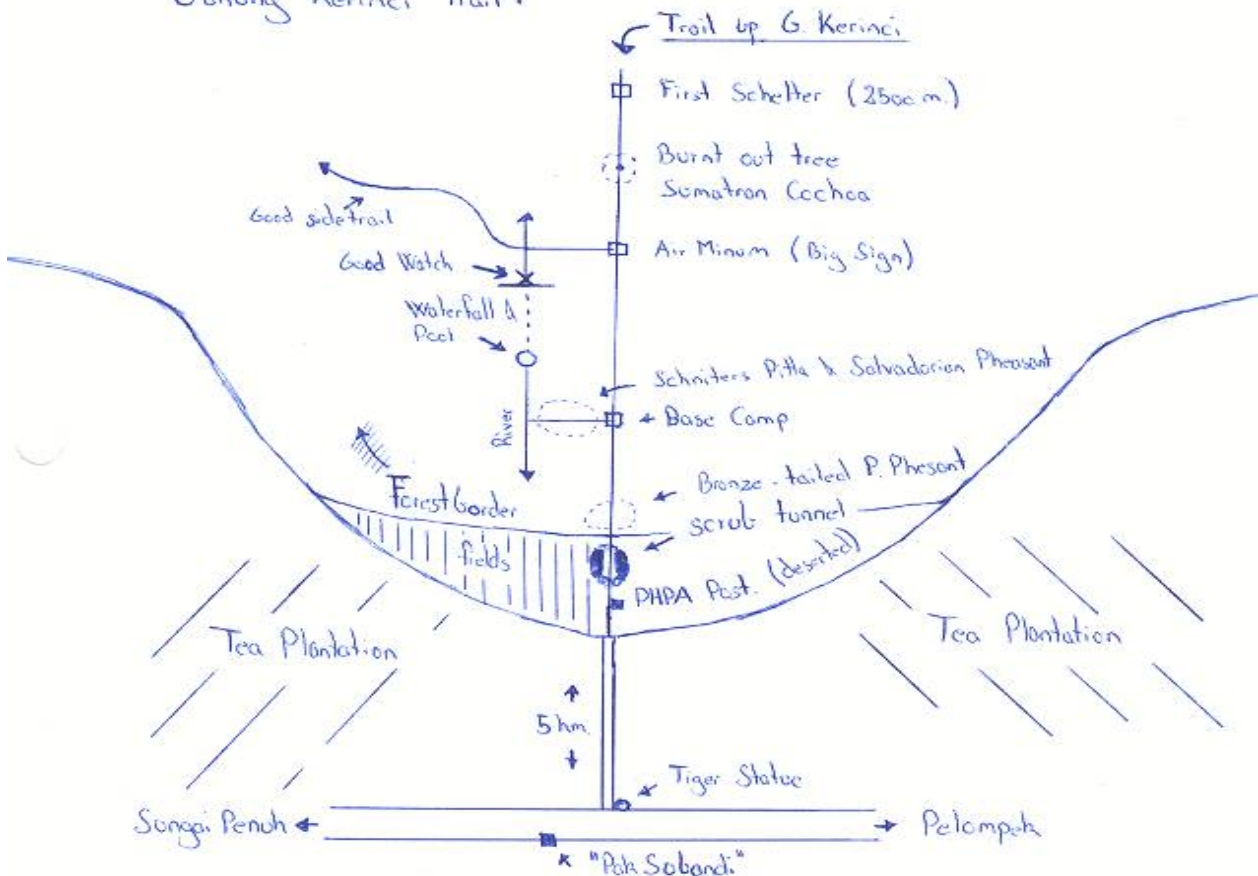 Gunung Kerinci Trail.
Trail up G. Kerinci
First Schelter (2500 m.)
Burnt out tree
Sumatran Cochoa
Good sidetrail
Air Minum (Big Sign)
Good Watch
Waterfall &
Pool
Schniters Pitta & Salvadorian Pheasant
Base Camp
River
Bronze-tailed P. Phesant
Forest border
scrub tunnel
fields
PHPA Post. (deserted)
Tea Plantation
Tea Plantation
5 km.
Tiger Statue
Sungai Penuh
Pelompek
"Pak Subandi"